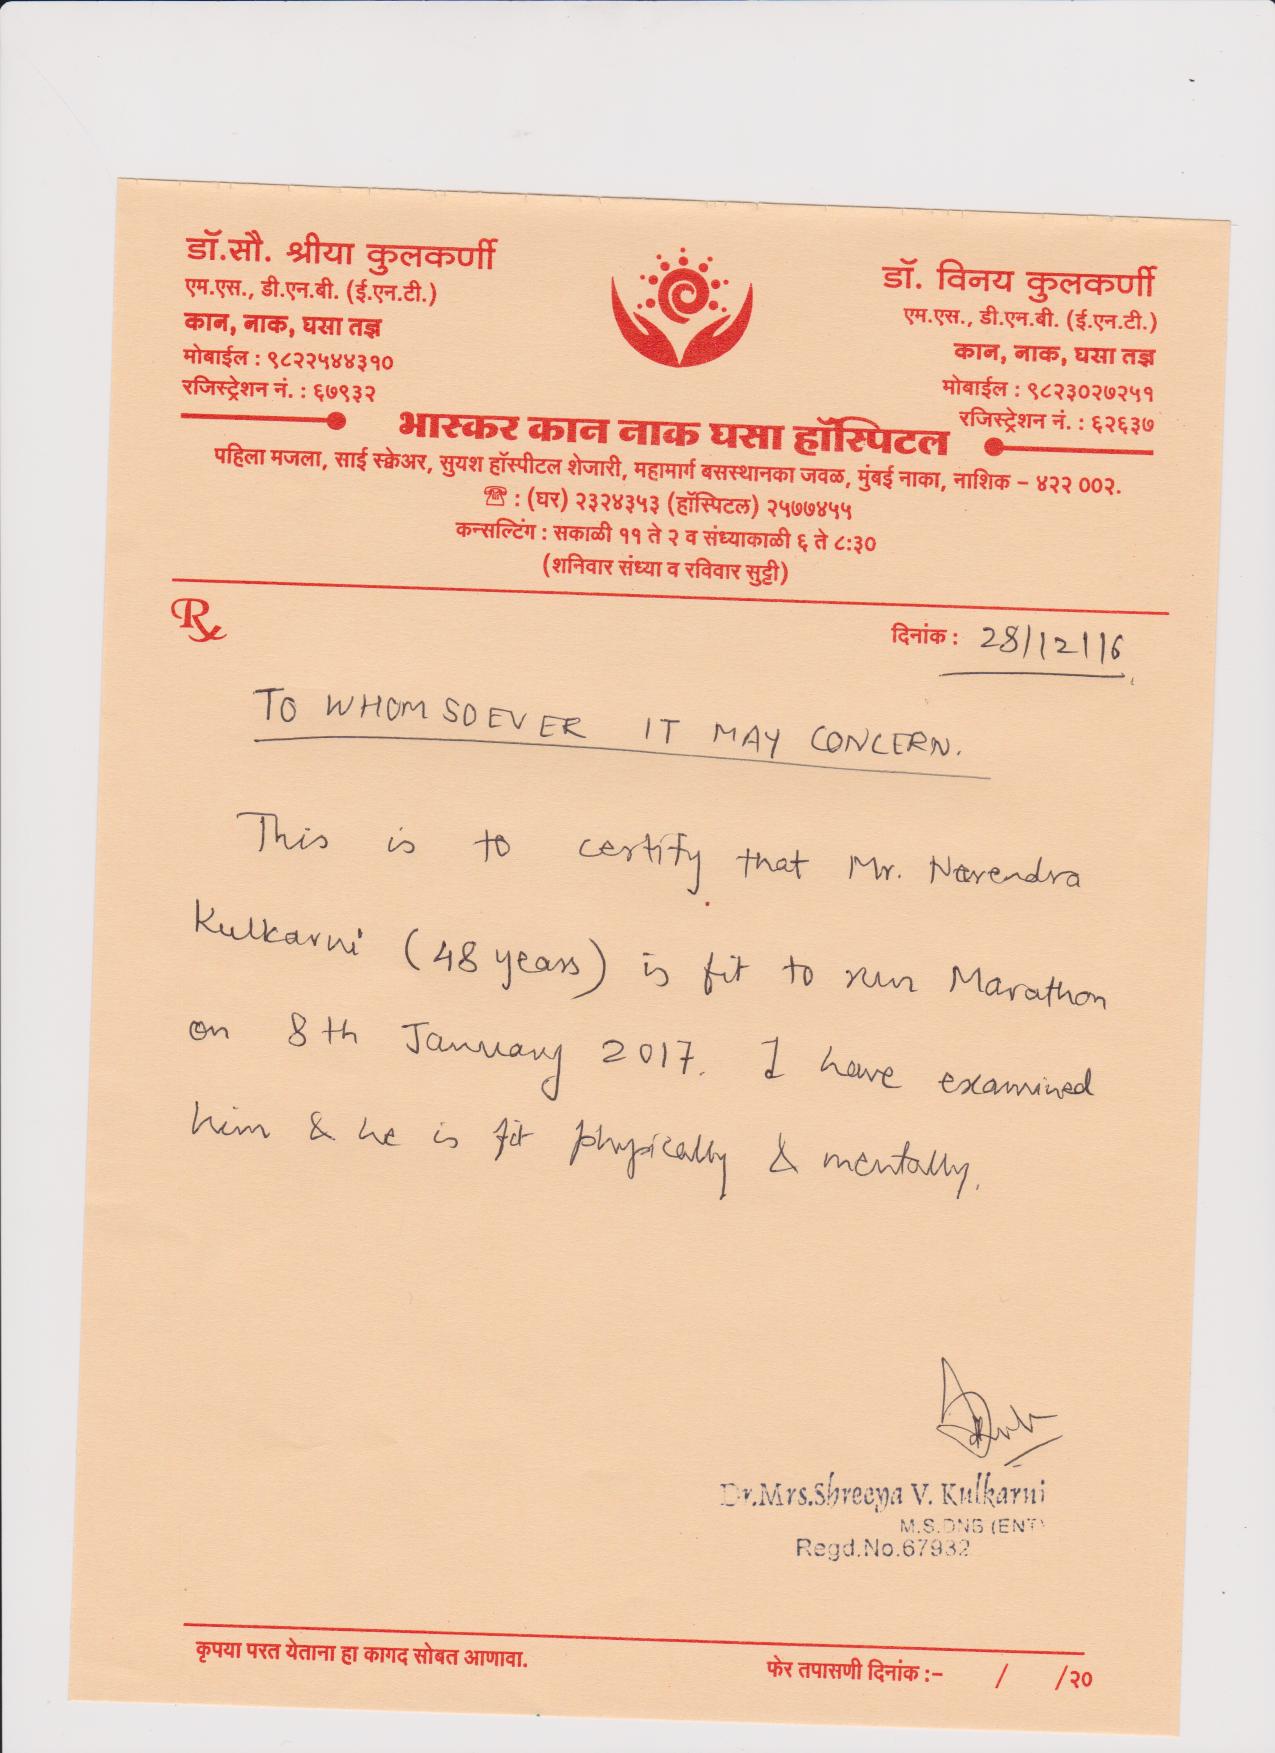 डॉ.सौ. श्रीया कुलकर्णी
एम.एस., डी.एन.बी. (ई.एन.टी.)
कान, नाक, घसा तज्ञ
मोबाईल : ९८२२५४४३१०
रजिस्ट्रेशन नं. : ६७९३२
डॉ. विनय कुलकर्णी
एम.एस., डी.एन.बी. (ई.एन.टी.)
कान, नाक, घसा तज्ञ
मोबाईल : ९८२३०२७२५१
रजिस्ट्रेशन नं. : ६२६३७
भास्कर कान नाक घसा हॉस्पिटल
पहिला मजला, साई स्क्वेअर, सुयश हॉस्पीटल शेजारी, महामार्ग बसस्थानका जवळ, मुंबई नाका, नाशिक – ४२२ ००२.
☎ : (घर) २३२४३५३ (हॉस्पिटल) २५७७४५५
कन्सल्टिंग : सकाळी ११ ते २ व संध्याकाळी ६ ते ८:३०
(शनिवार संध्या व रविवार सुट्टी)
℞
दिनांक : 28/12/16
TO WHOMSOEVER IT MAY CONCERN.
This is to certify that Mr. Narendra
Kulkarni (48 years) is fit to run Marathon
on 8th January 2017. I have examined
him & he is fit physically & mentally.
Dr.Mrs.Shreeya V. Kulkarni
M.S.DNB (ENT)
Regd.No.67932
कृपया परत येताना हा कागद सोबत आणावा.
फेर तपासणी दिनांक :- / /२०